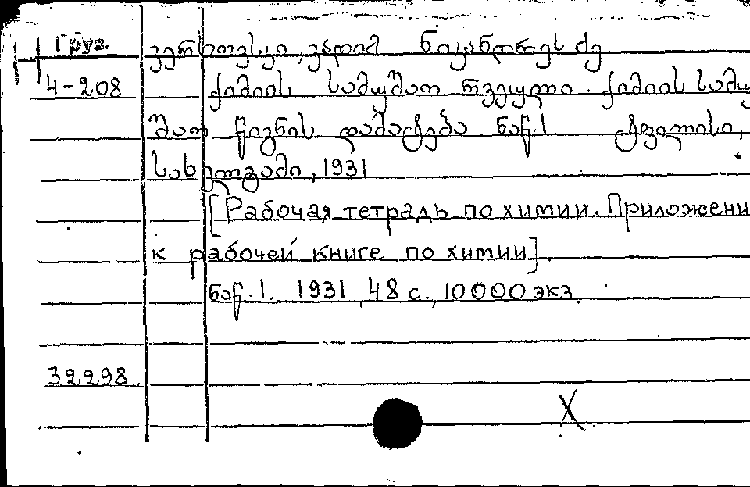 Груз.
4-208
ვერხოვსკი, ვადიმ ნიკანდრეს ძე
ქიმიის სამუშაო რვეული. ქიმიის სამუ
შაო წიგნის დამატება ნაწ. 1 ტფილისი,
სახელგამი, 1931
[Рабочая тетрадь по химии. Приложени
к рабочей книге по химии].
ნაწ. 1. 1931, 48 с., 10000 экз.
32298
X